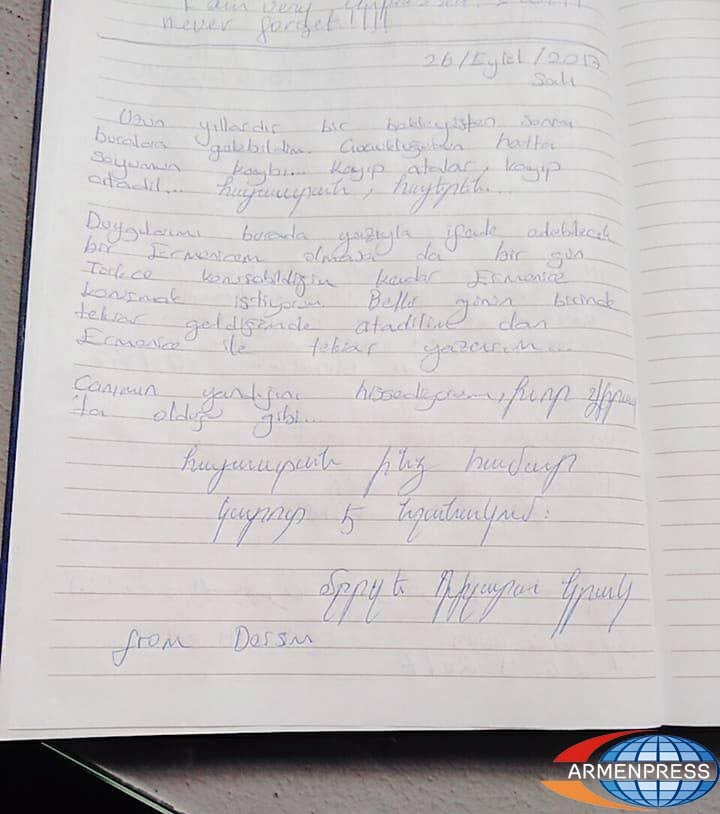 I am very
never forget!!!!
26/Eylül/2013
Salı
Uzun yıllardır bir bekleyişten sonra
buralara gelebildim. Çocukluğumun hatta
soyumun kaybı... kayıp atalar, kayıp
atadil... հայաստան, հայերեն...
Duygularımı burada yazıyla ifade edebilecek
bir Ermenicem olmasa da bir gün
Türkçe konuşabildiğim kadar Ermenice
konuşmak istiyorum. Belki günün birinde
tekrar geldiğimde atadilim olan
Ermenice ile tekrar yazarım...
Canımın yandığını hissediyorum,
'ta olduğu gibi...
հայաստան ինձ համար
կարոտ է նշանակում:
from Dersim
ARMENPRESS